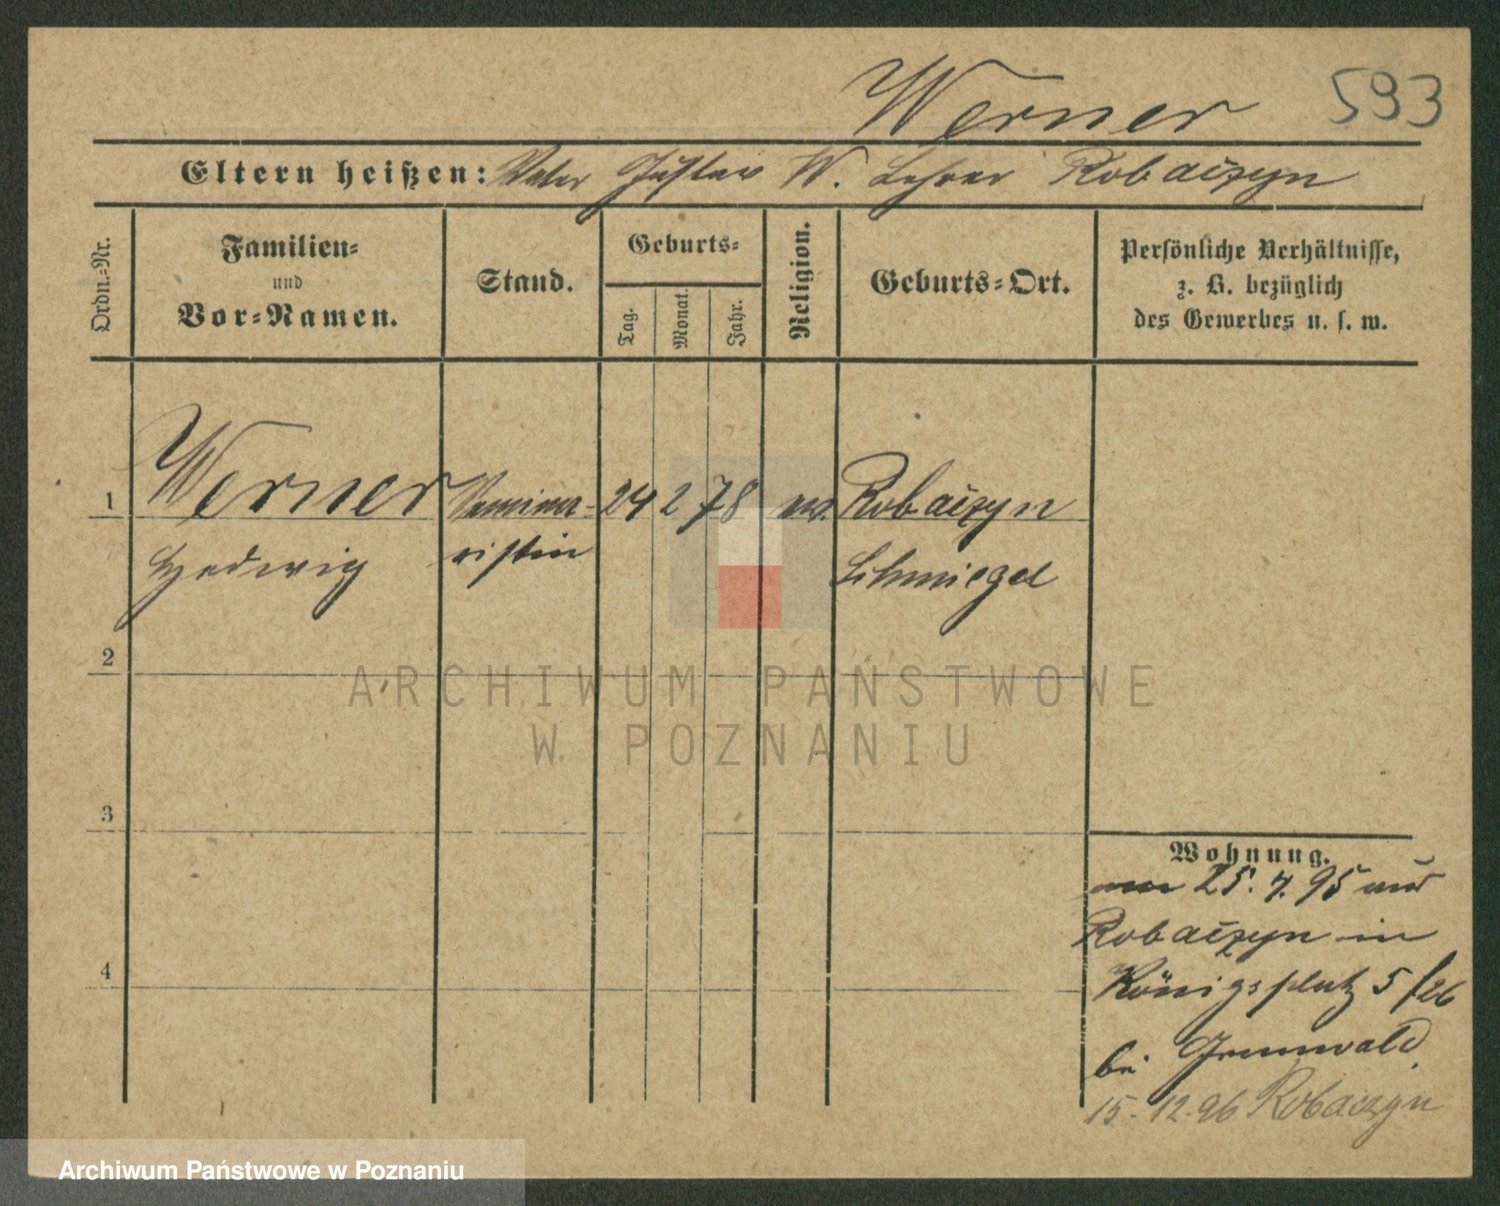 Werner 593
Eltern heißen: Vater Gustav W. Lehrer Robaczyn
Ordn.-Nr.
Familien-
und
Vor-Namen.
Stand.
Geburts-
Tag.
Monat.
Jahr.
Religion.
Geburts-Ort.
Persönliche Verhältnisse,
z. B. bezüglich
des Gewerbes u. s. w.
1 Werner Semina- 24 2 78 ev. Robaczyn
Hedwig ristin Schmiegel
2
ARCHIWUM PAŃSTWOWE
W POZNANIU
3
Wohnung.
25. 7. 95 aus
Robaczyn in
4
Königsplatz 5 /26
bei Grunwald.
15. 12. 96 Robaczyn
Archiwum Państwowe w Poznaniu